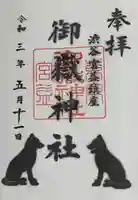 奉拝
渋谷宮益鎮座
御嶽神社
令和三年五月十一日